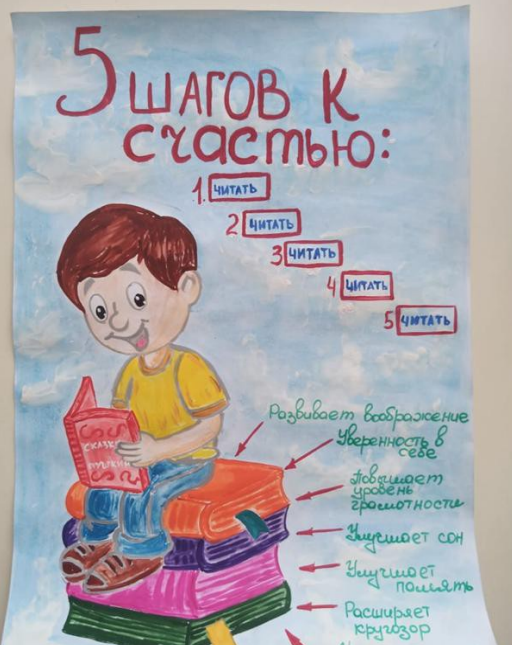 5 шагов к
счастью:
1. читать
2 читать
3 читать
4 читать
5 читать
Развивает воображение
Уверенность в
себе
Повышает
уровень
грамотности
Улучшает сон
Улучшает
память
Расширяет
кругозор
Сказки
Пушкин